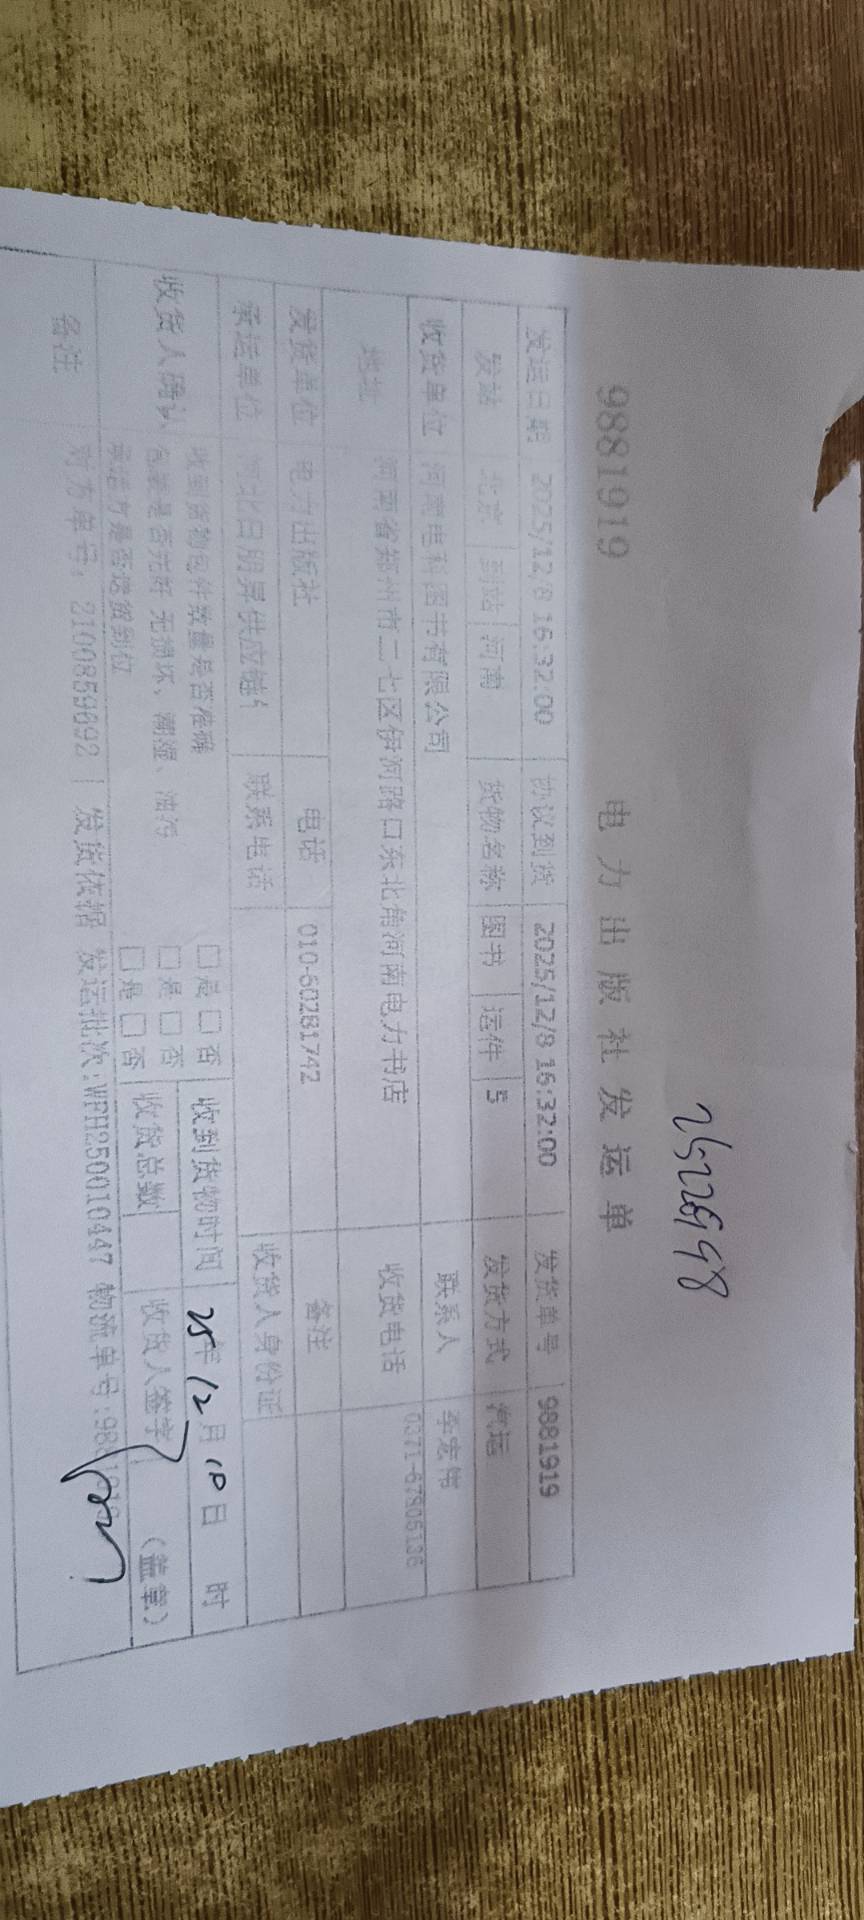 9881919
电力出版社发运单
发运日期 2025/12/8 16:32:00 协议到货 2025/12/8 16:32:00 发货单号 9881919
发站 北京 到站 河南 货物名称 图书 运件 5 发货方式 汽运
收货单位 河南电科图书有限公司 联系人 李宏伟
地址 河南省郑州市二七区伊河路口东北角河南电力书店 收货电话 0371-67905136
发货单位 电力出版社 电话 010-60281742 备注
承运单位 河北日朋昇供应链 联系电话 收货人身份证
收货人确认 收到货物包件数量是否准确 □是□否 收到货物时间 25年12月10日 时
包装是否完好 无损坏、潮湿、油污 □是□否 收货总数 收货人签字 (盖章)
承运方是否送货到位 □是□否
备注 对方单号: 2100859692 | 发货依据 发运批次:WPH250010447 物流单号:9881919